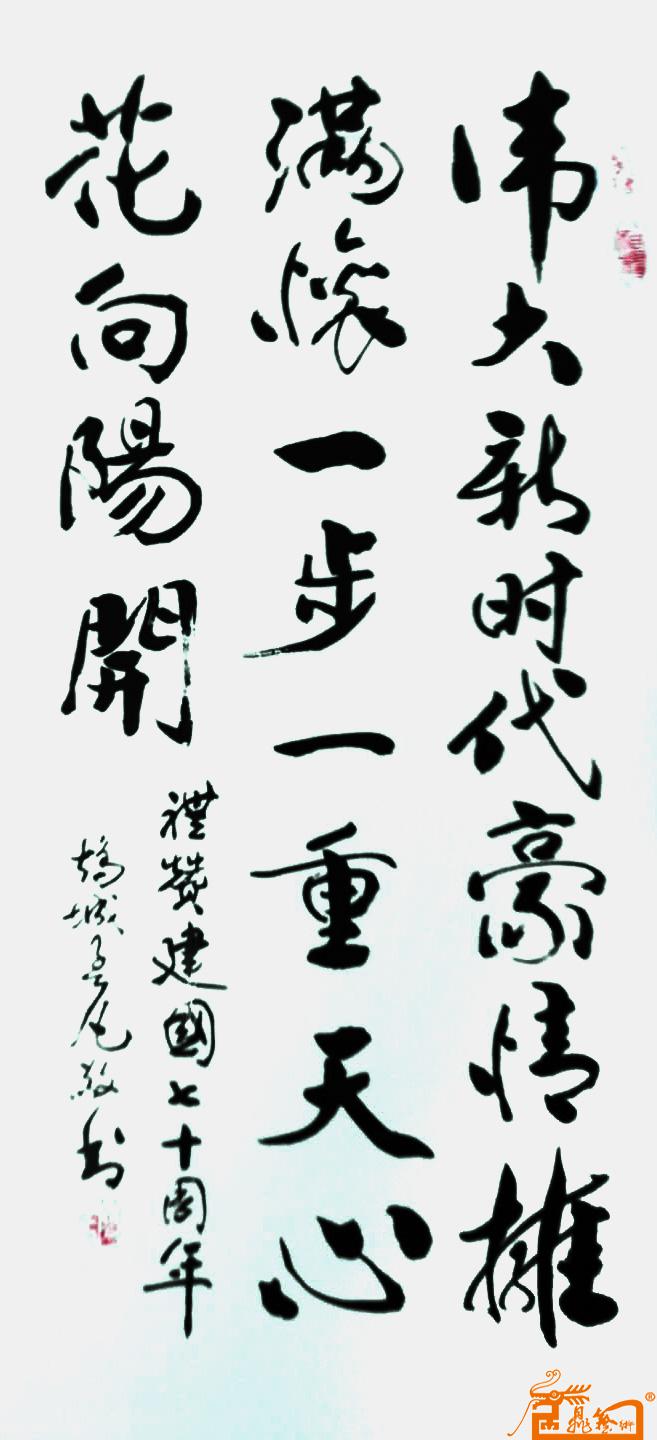 伟大新时代豪情擁
满懷一步一重天心
花向陽開
禮贊建國七十周年
城
凡敬书